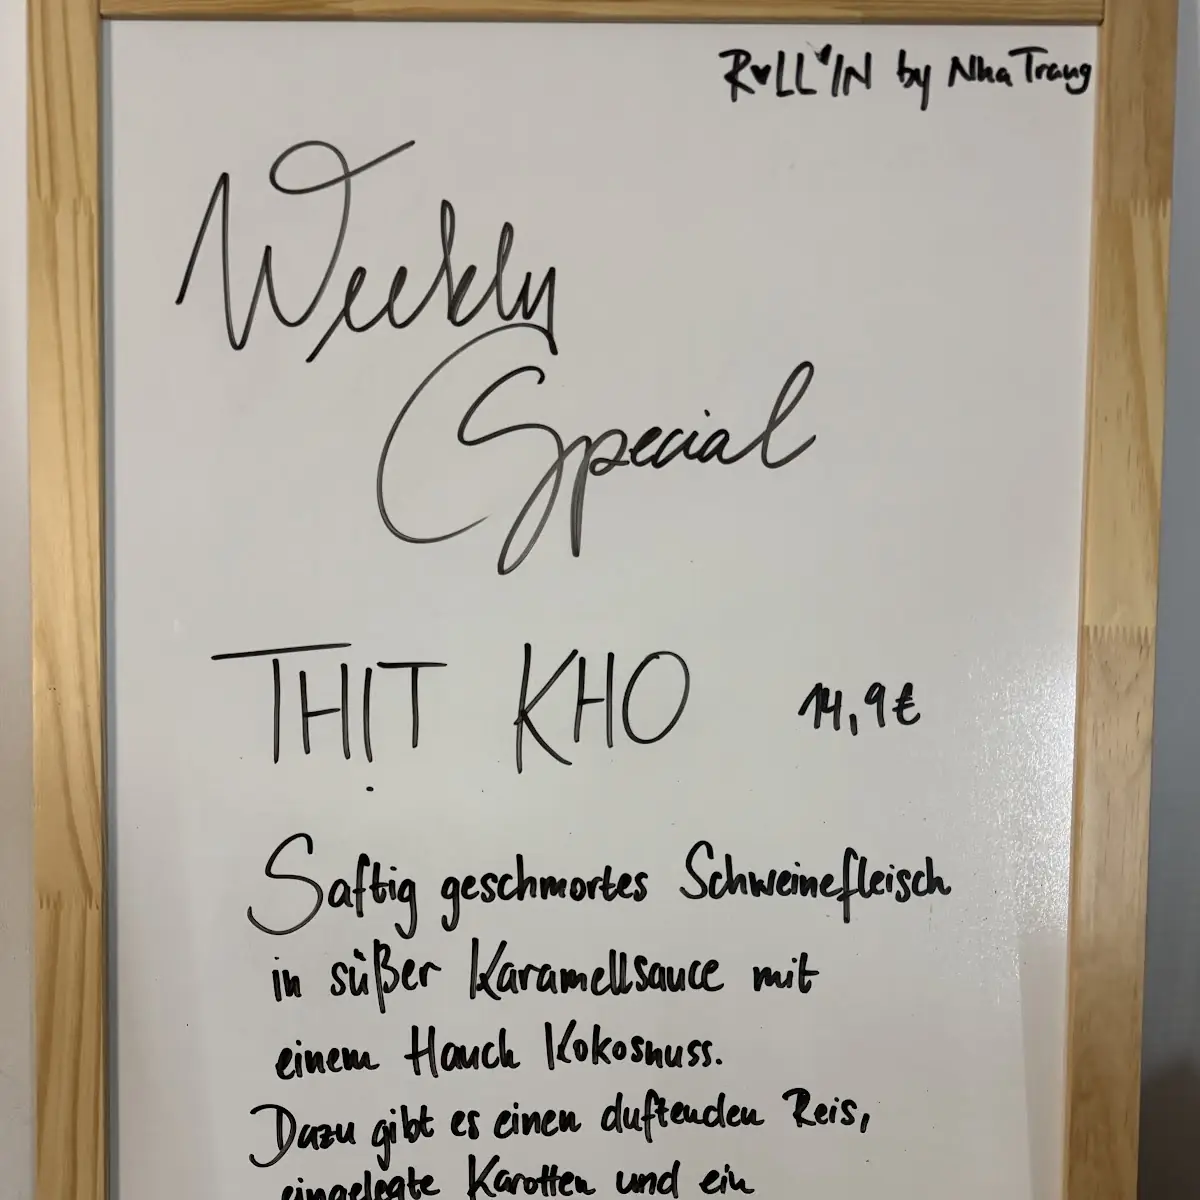 R♥LL'IN by Nha Trang
Weekly
Special
THỊT KHO 14,9€
Saftig geschmortes Schweinefleisch
in süßer Karamellsauce mit
einem Hauch Kokosnuss.
Dazu gibt es einen duftenden Reis,
eingelegte Karotten und ein